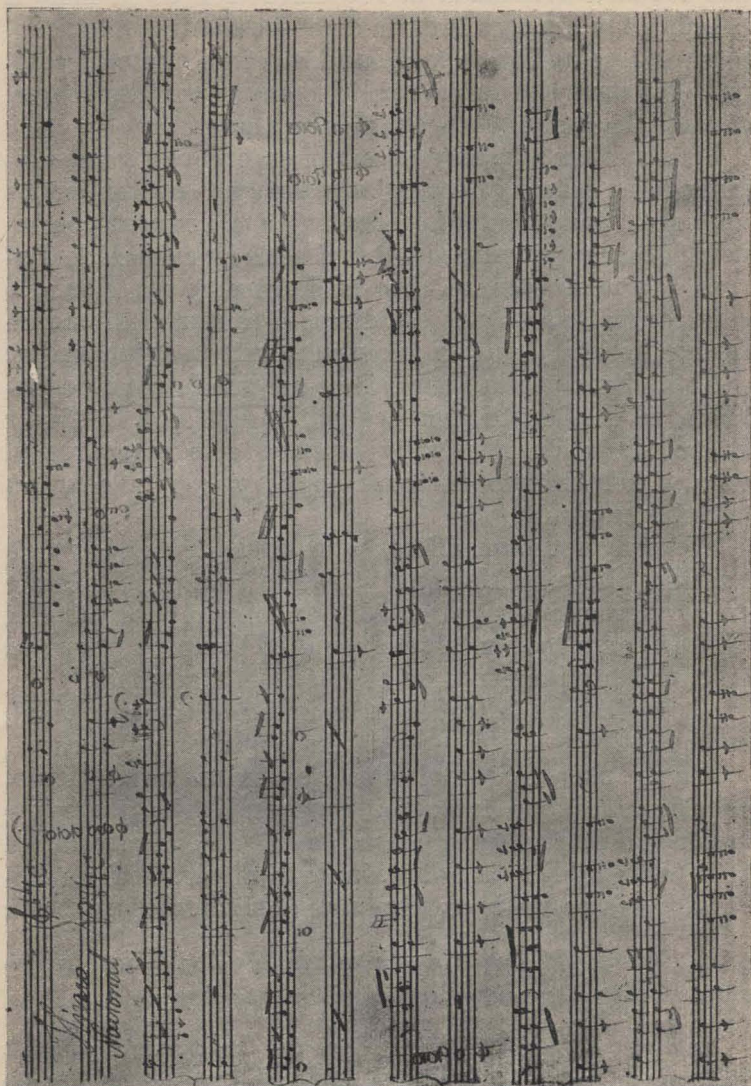 Himno
Nacional